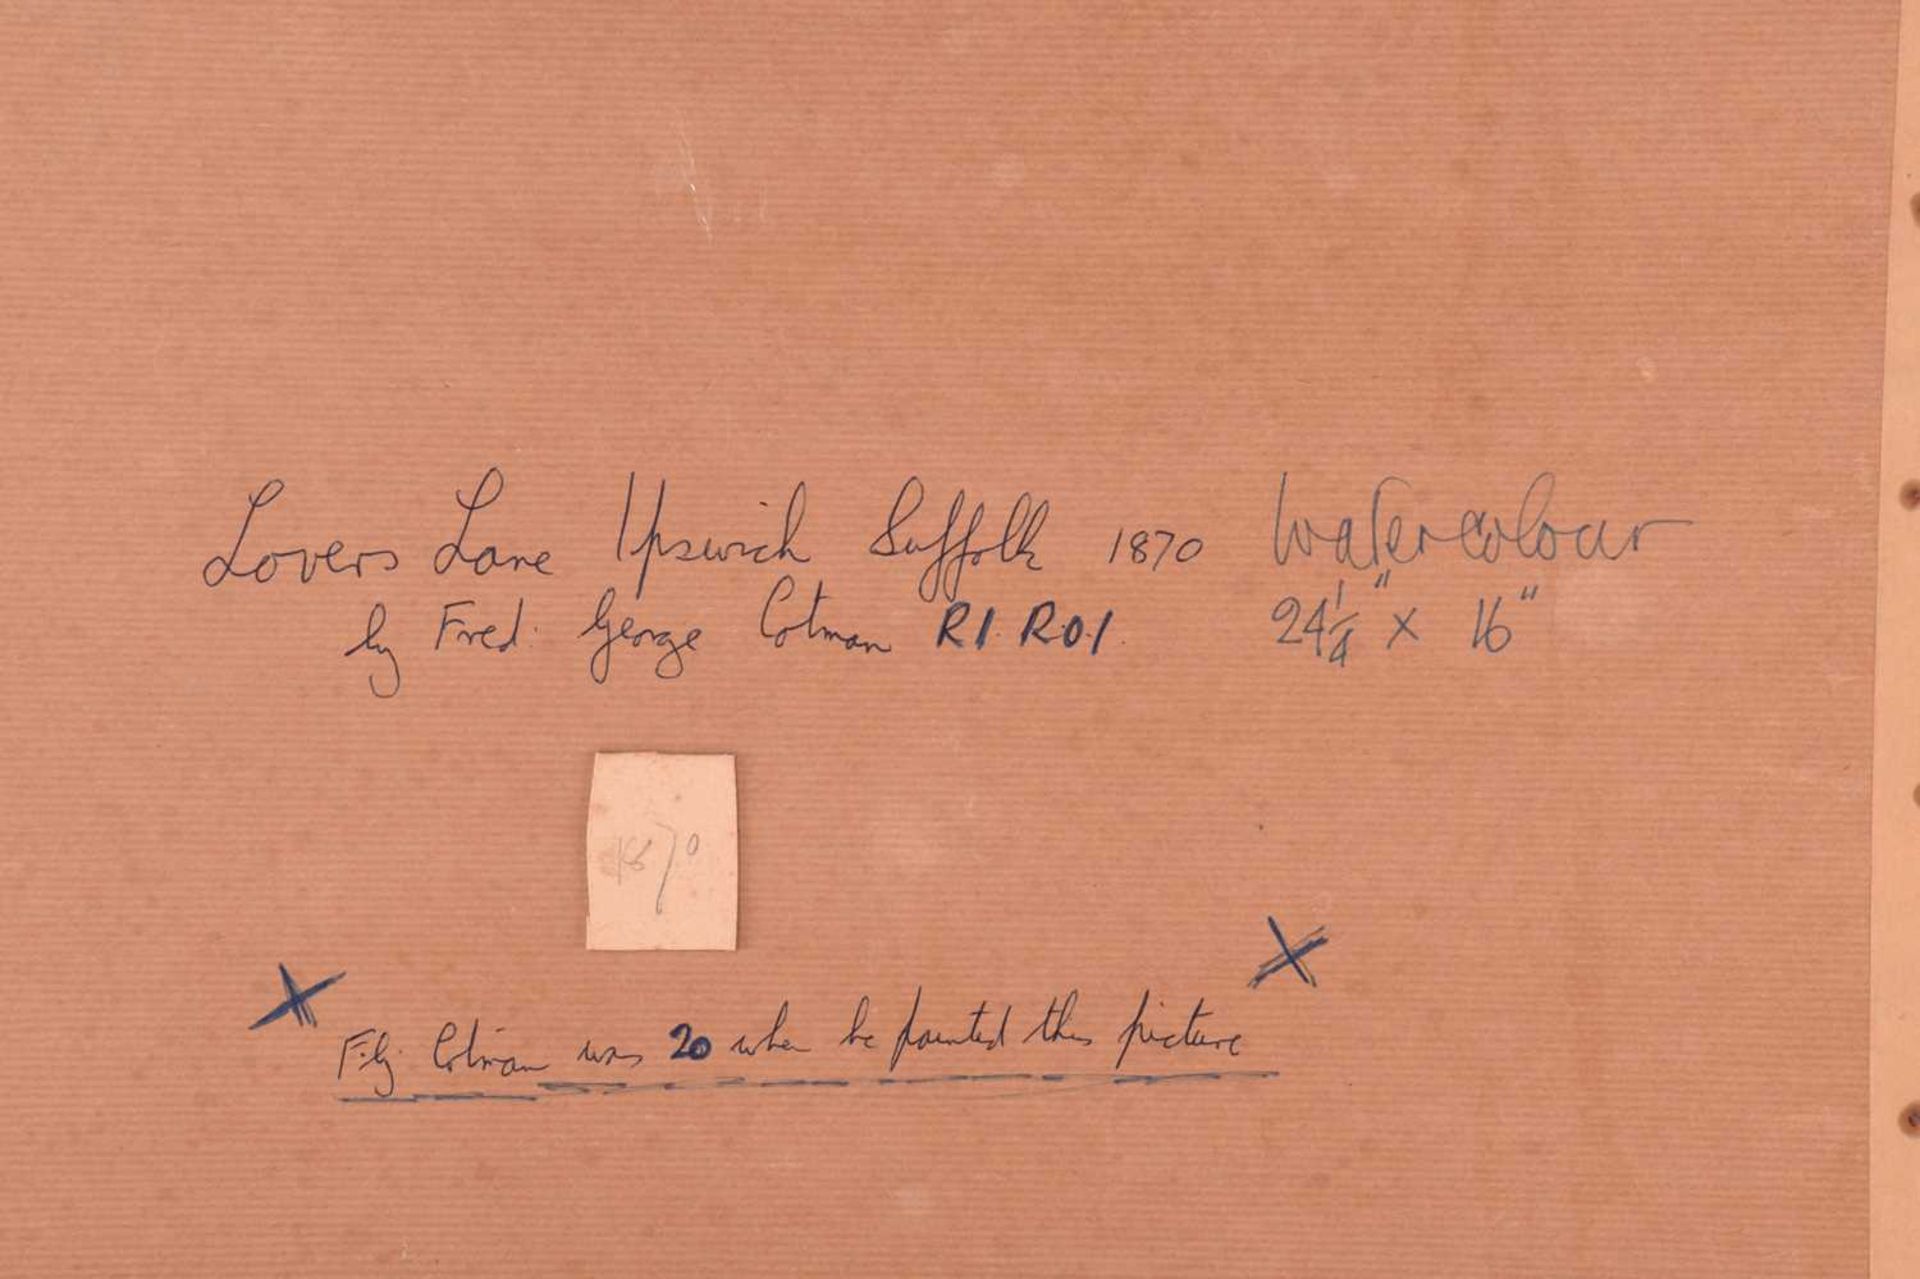 Lovers Lane Ipswich Suffolk 1870 Watercolour
by Fred. George Cotman R.I. R.O.I. 24 1/4" x 16"
1870
X X
F.G. Cotman was 20 when he painted this picture